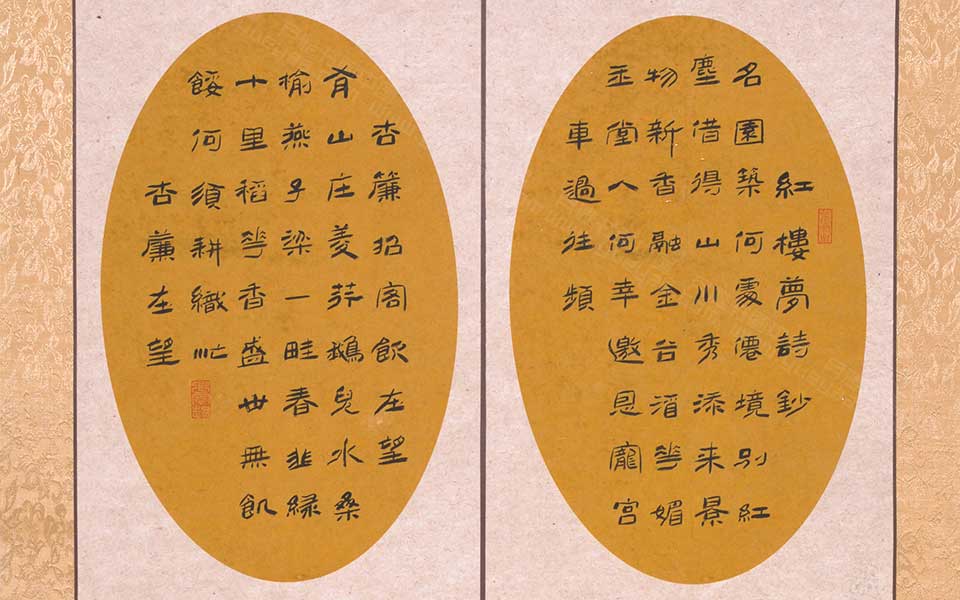 紅樓夢詩鈔
名園築何處僊境別紅
塵借得山川秀添来景
物新香融金谷酒華媚
玉堂人何幸邀恩寵宮
車過往頻
杏簾招客飲在望
有山庄菱荇鵝兒水桑
榆燕子梁一畦春韭緑
十里稻華香盛世無飢
餒何須耕織忙
杏簾在望